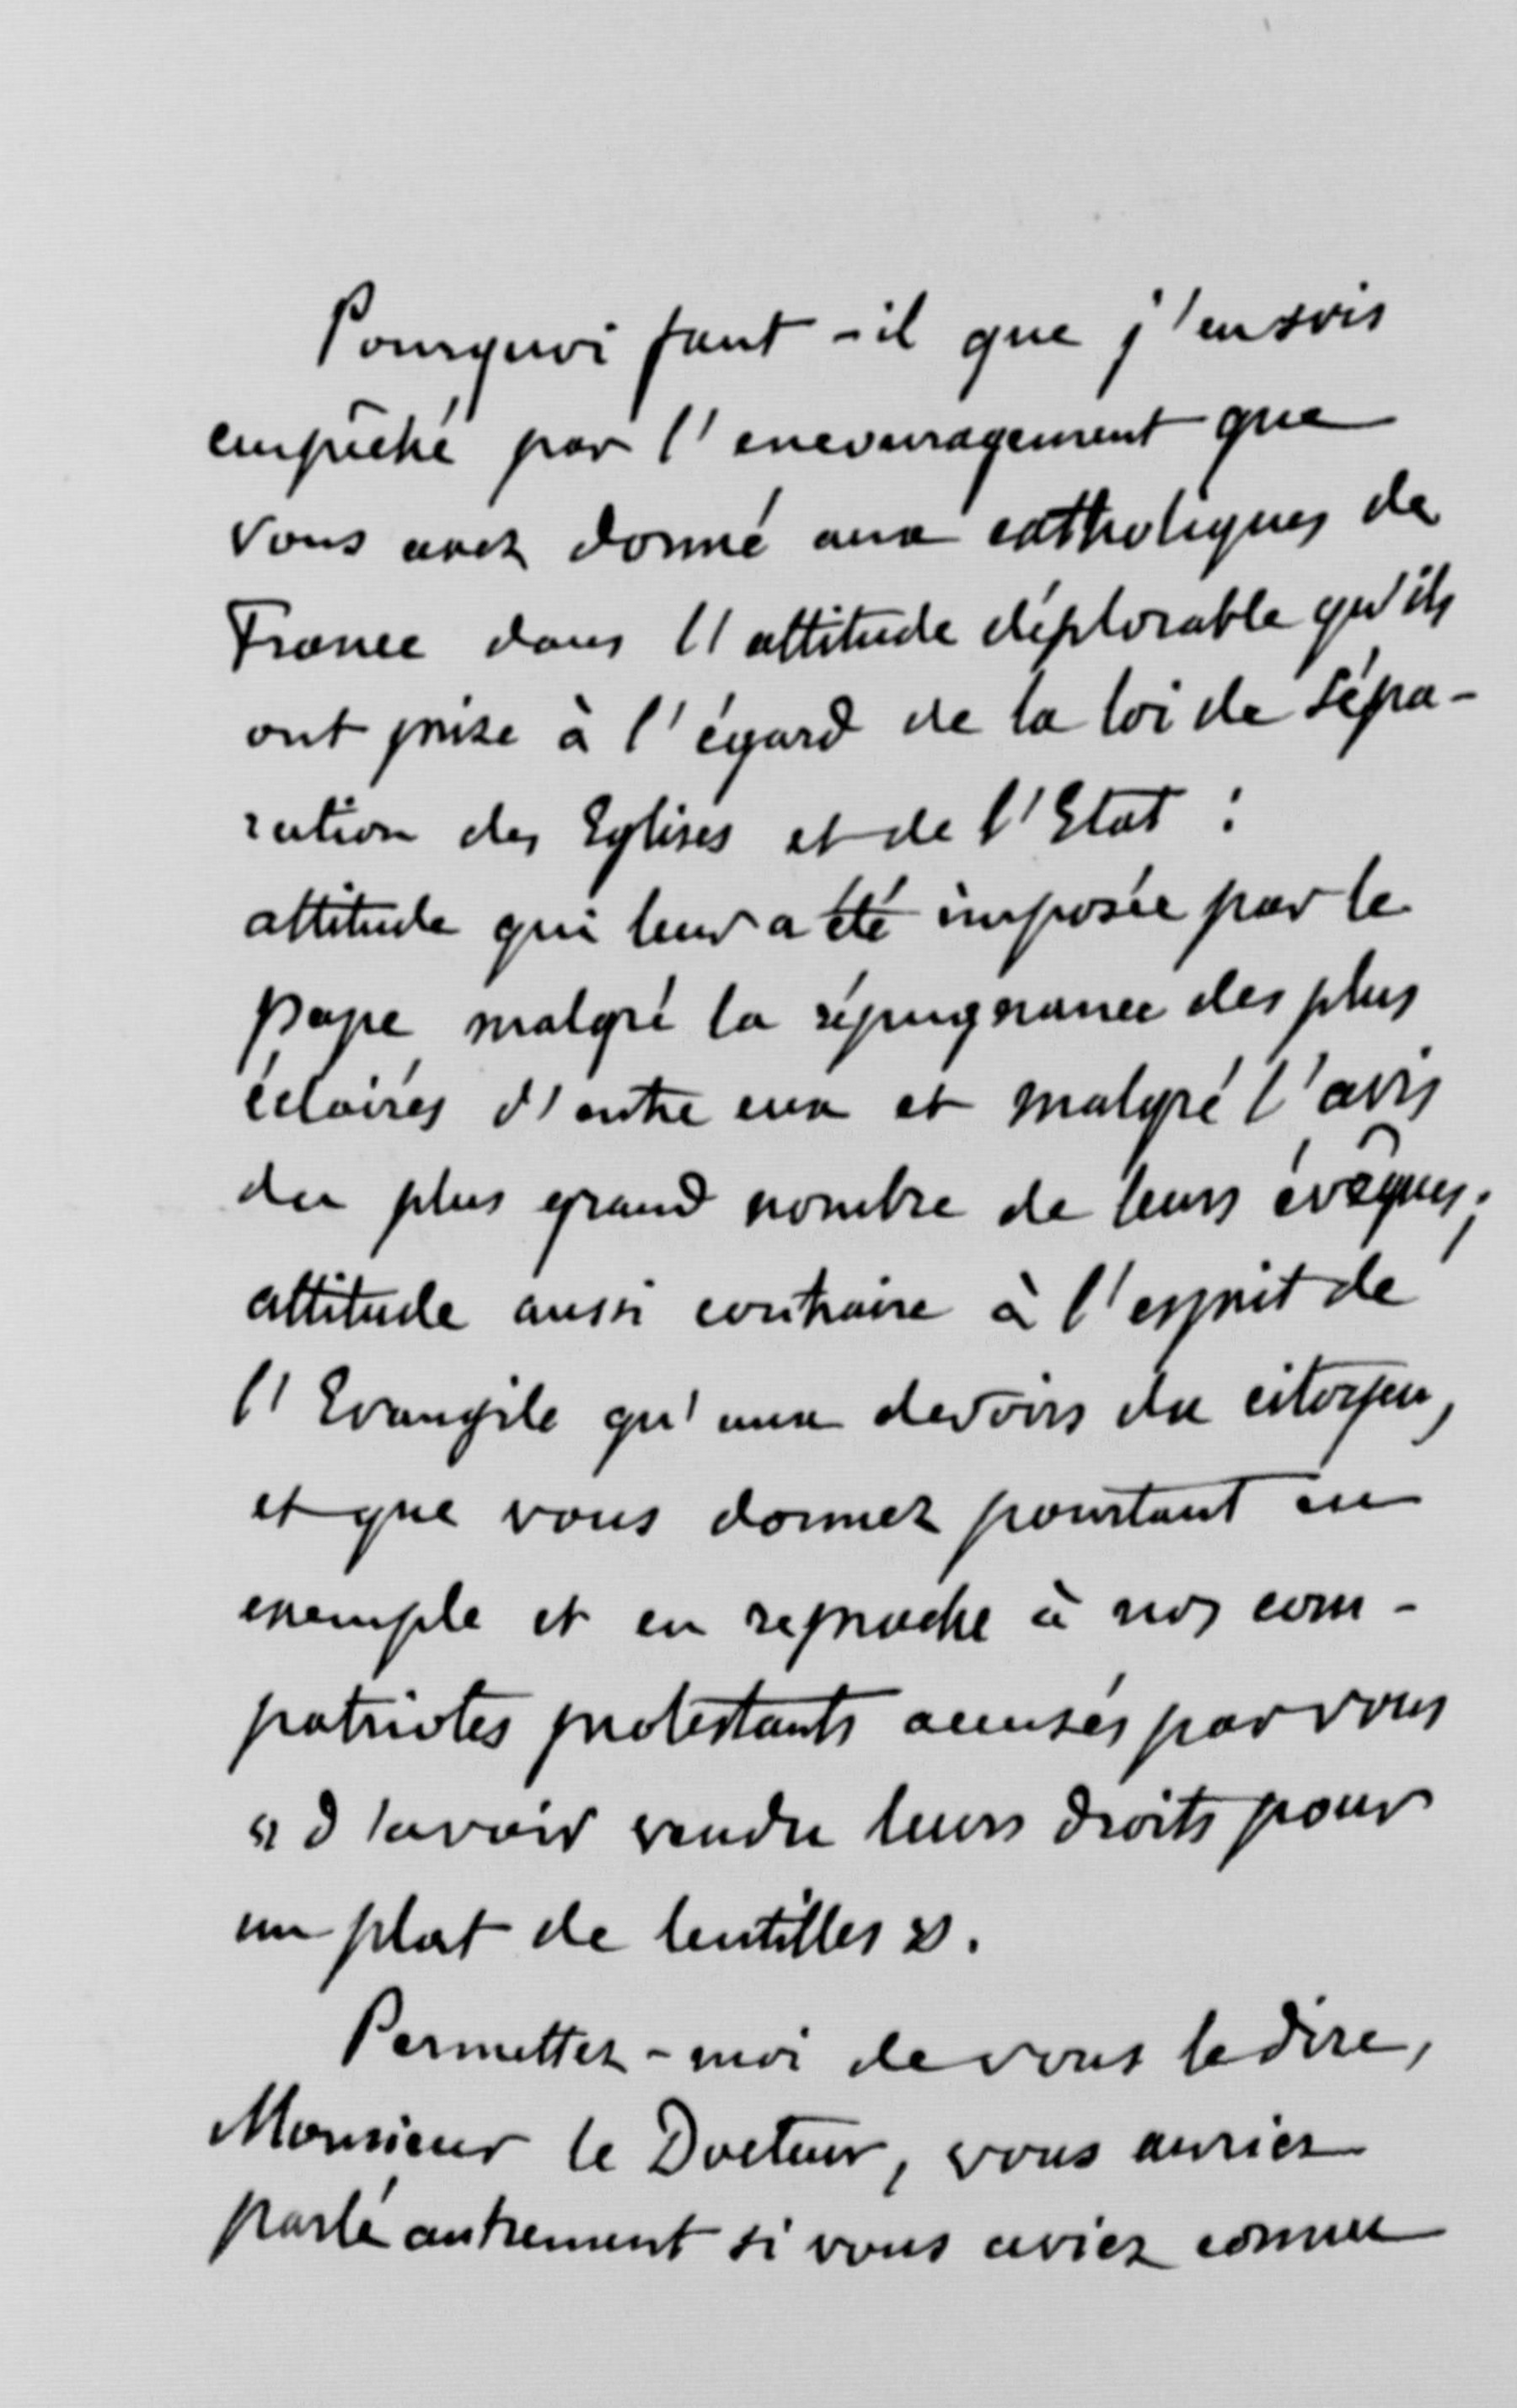 Pourquoi faut-il que j'en sois
empêché par l'encouragement que
vous avez donné aux catholiques de
France dans l'attitude déplorable qu'ils
ont prise à l'égard de la loi de sépa-
ration des Eglises et de l'Etat :
attitude qui leur a été imposée par le
pape malgré la répugnance des plus
éclairés d'entre eux et malgré l'avis
du plus grand nombre de leurs évêques;
attitude aussi contraire à l'esprit de
l'Evangile qu'aux devoirs du citoyen,
et que vous donnez pourtant en
exemple et en reproche à nos com-
patriotes protestants accusés par vous
« d'avoir vendu leurs droits pour
un plat de lentilles ».
Permettez-moi de vous le dire,
Monsieur le Docteur, vous auriez
parlé autrement si vous aviez connu